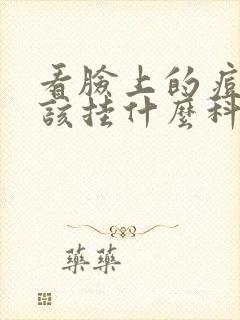 看臉上的痘
該挂什麼科
藥藥